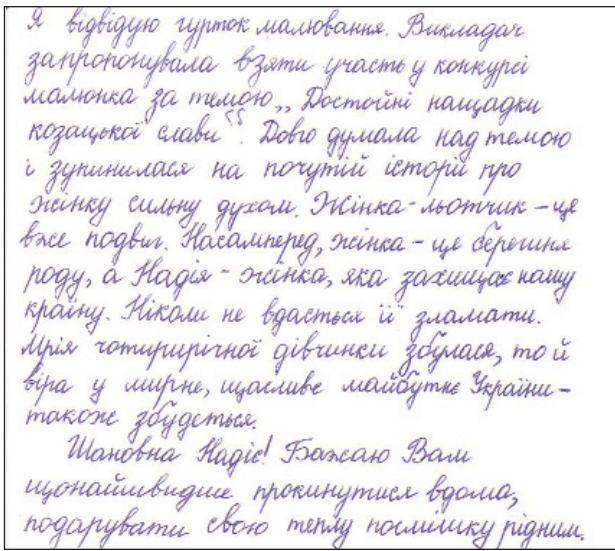 Я відвідую гурток малювання. Викладач
запропонувала взяти участь у конкурсі
малюнка за темою „Достойні нащадки
козацької слави“. Довго думала над темою
і зупинилася на почутій історій про
жінку сильну духом. Жінка-льотчик – це
вже подвиг. Насамперед, жінка – це берегиня
роду, а Надія – жінка, яка захищає нашу
країну. Ніколи не вдасться її зламати.
Мрія чотирирічної дівчинки збулася, то й
віра у мирне, щасливе майбутнє України –
також збудеться.
Шановна Надіє! Бажаю Вам
щонайшвидше прокинутися вдома,
подарувати свою теплу посмішку рідним.